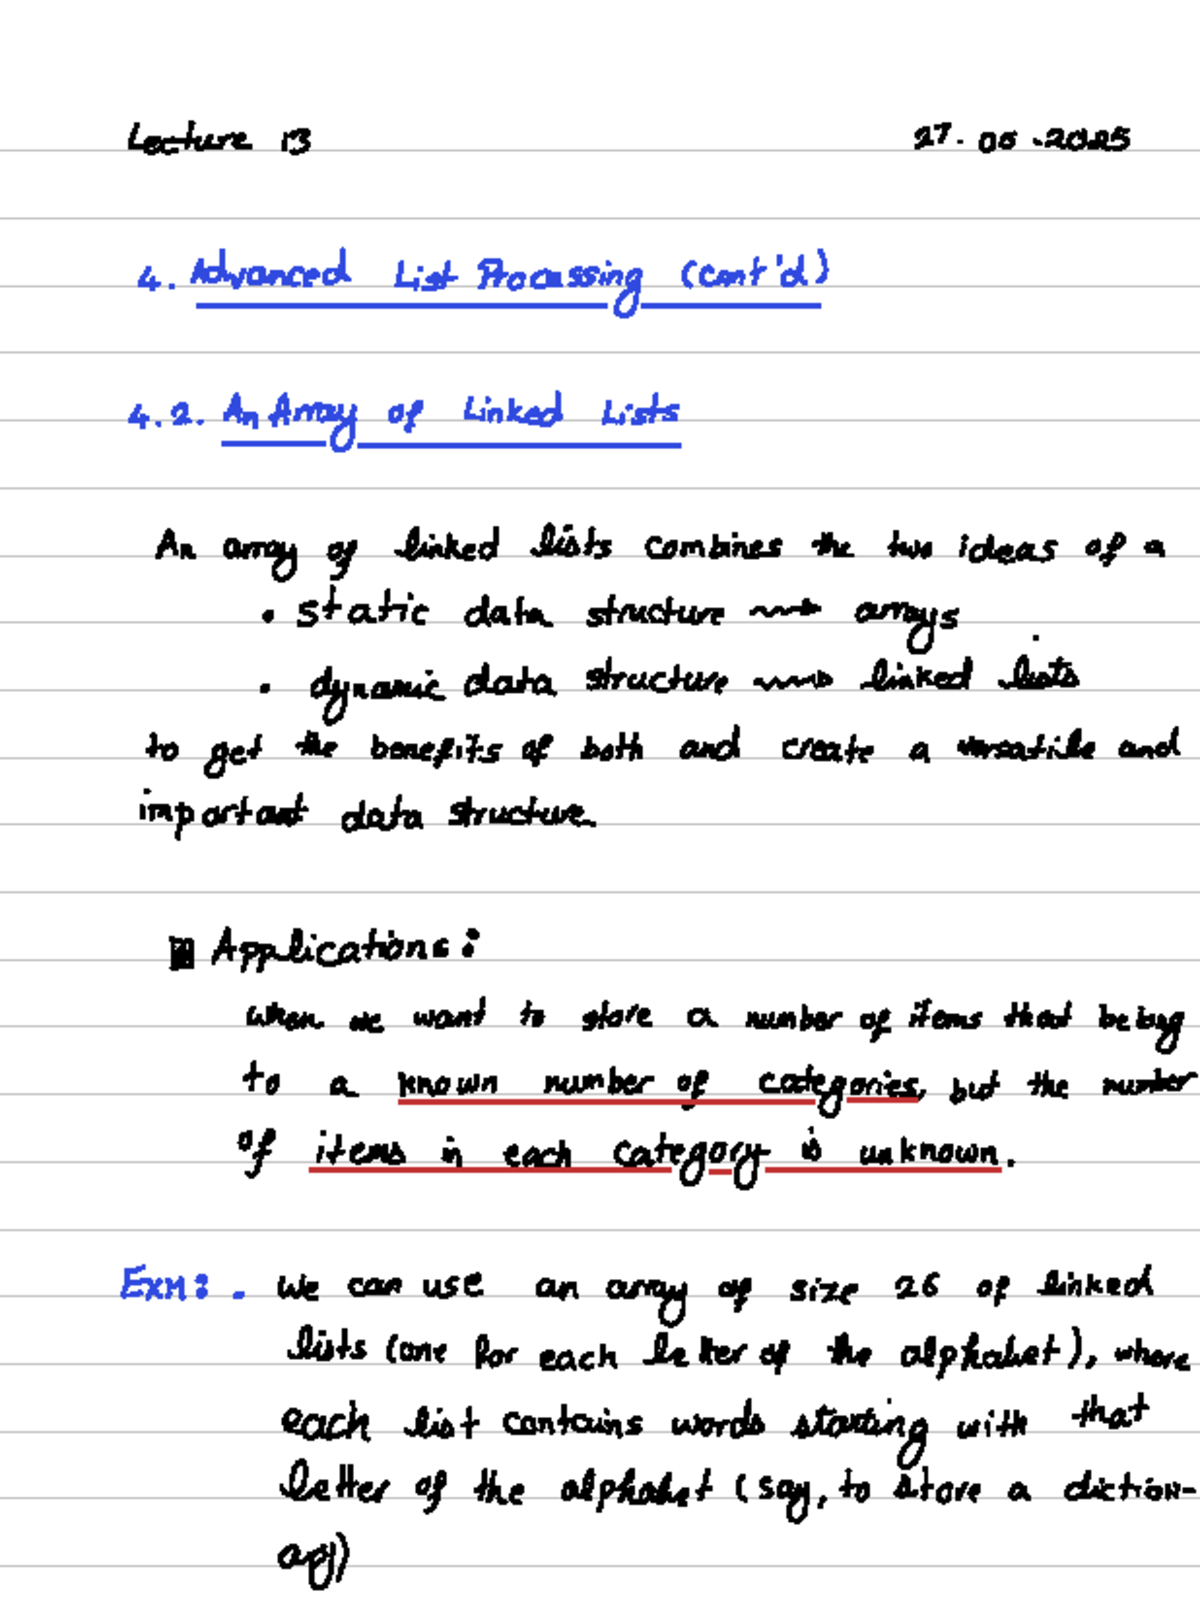 Lecture 13 27.05.2025
4. Advanced List Processing (cont'd)
4.2. An Array of Linked Lists
An array of linked lists combines the two ideas of a
• static data structure ⟿ arrays
• dynamic data structure ⟿ linked lists
to get the benefits of both and create a versatile and
important data structure.
Applications:
when we want to store a number of items that belong
to a known number of categories, but the number
of items in each category is unknown.
Exm: . We can use an array of size 26 of linked
lists (one for each letter of the alphabet), where
each list contains words starting with that
letter of the alphabet (say, to store a diction-
ary)